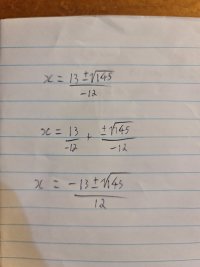 x = 13 ±√145 / -12
x = 13 / -12 + ±√145 / -12
x = -13 ±√145 / 12